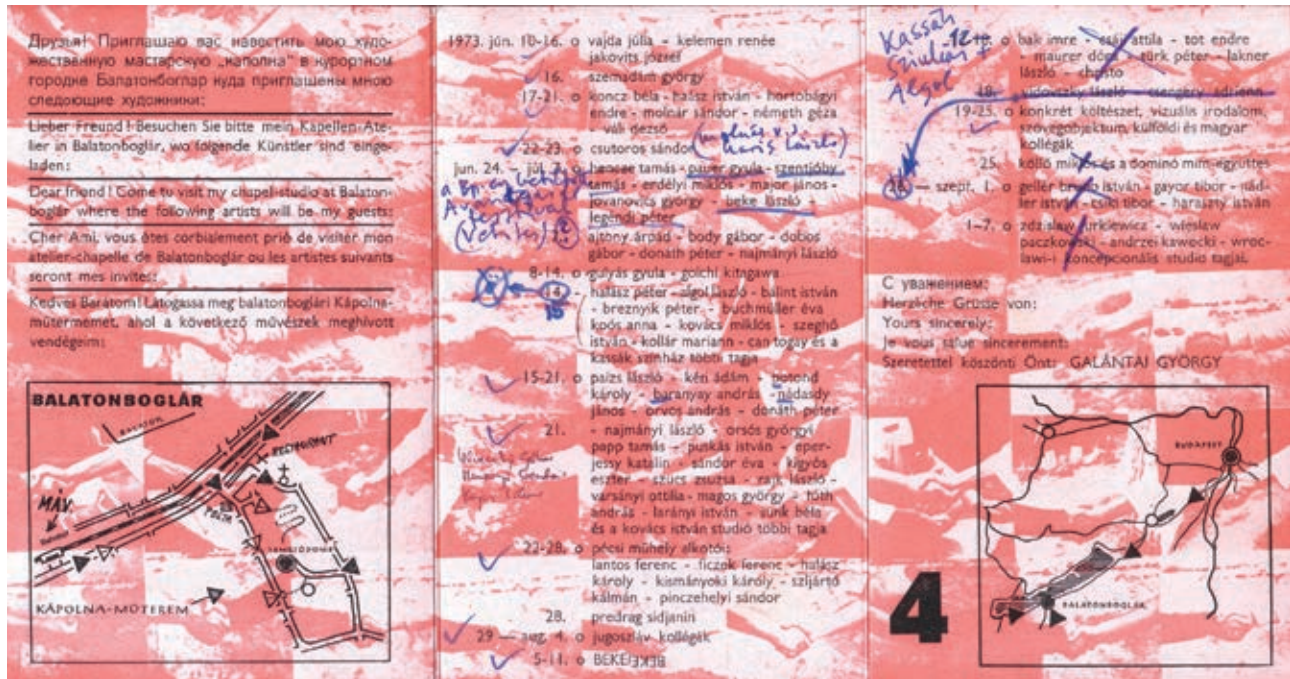 Друзья! Приглашаю вас навестить мою худо-
жественную мастерскую „каполна" в курортном
городке Балатонбоглар куда приглашены мною
следующие художники:
Lieber Freund! Besuchen Sie bitte mein Kapellen-Ate-
lier in Balatonboglár, wo folgende Künstler sind einge-
laden:
Dear friend! Come tu visit my chapel-studio at Balaton-
boglár where the following artists will be my guests:
Cher Ami, vous êtes corbialement prió de visiter mon
atelier-chapelle de Balatonboglár ou les artistes suivants
seront mes invites:
Kedves Barátom! Látogassa meg balatonboglári Kápolna-
mütermemet, ahol a következő művészek meghívott
vendégeim:
BALATONBOGLÁR
BALATON
MÁV.
POSTA
TEMETŐDOMB
KÁPOLNA-MŰTEREM
1973. jún. 10-16. o vajda júlia - kelemen renée
jakovits józsef
16. szemadám györgy
17-21. o koncz béla - haász istván - hortobágyi
endre - molnár sándor - németh géza
- váli dezső
22-23. o csutoros sándor (molnár v. j
haris lászló)
jun. 24. — júl. 7. o hencze tamás - pauer gyula - szentjóby
tamás - erdélyi miklós - major jános -
jovánovics györgy - beke lászló -
legéndi péter
ajtony árpád - body gábor - dobos
gábor - donáth péter - najmányi lászló
8-14. o gulyás gyula - goichi kitagawa
14. halász péter - algol lászló - bálint istván
15
- breznyik péter - buchmüller éva
koós anna - kovács miklós - szeghő
istván - kollár mariann - can togay és a
kassák színház többi tagja
15-21. o paizs lászló - kéri ádám - potond
károly - baranyay andrás - nádasdy
jános - orvos andrás - donáth péter
21. - najmányi lászló - orsós györgyi
papp tamás - puskás istván - eper-
jessy katalin - sándor éva - kígyós
eszter - szücs zsuzsa - rajk lászló -
varsányi ottilia - magos györgy - tóth
andrás - larányi istván - zunk béla
és a kovács istván studió többi tagja
22-28. o pécsi műhely alkotói:
lantos ferenc - ficzek ferenc - halász
károly - kismányoki károly - szíjártó
kálmán - pinczehelyi sándor
28. predrag sidjanin
29 — aug. 4. o jugoszláv kollégák
5-11. o BEKE
Kassák
Sziniáz
Algol
12-18. o bak imre - csáji attila - tot endre
- maurer dóra - türk péter - lakner
lászló - christo
18. vidovszky lászló - csengery adrienn
19-25. o konkrét költészet, vizuális irodalom,
szövegobjektum, külföldi és magyar
kollégák
25. köllő miklós és a dominó mim-együttes
26. — szept. 1. o gellér brunó istván - gayor tibor - nád-
ler istván - csiki tibor - haraszty istván
1-7. o zdzislaw jurkiewicz - wieslaw
paczkowski - andrzei kawocki - wroc-
lawi-i koncepcionális studio tagjai.
С уважением:
Herzliche Grüsse von:
Yours sincerely:
Je vous salue sincerement:
Szeretettel köszönti Önt: GALÁNTAI GYÖRGY
4
BUDAPEST
BALATONBOGLÁR